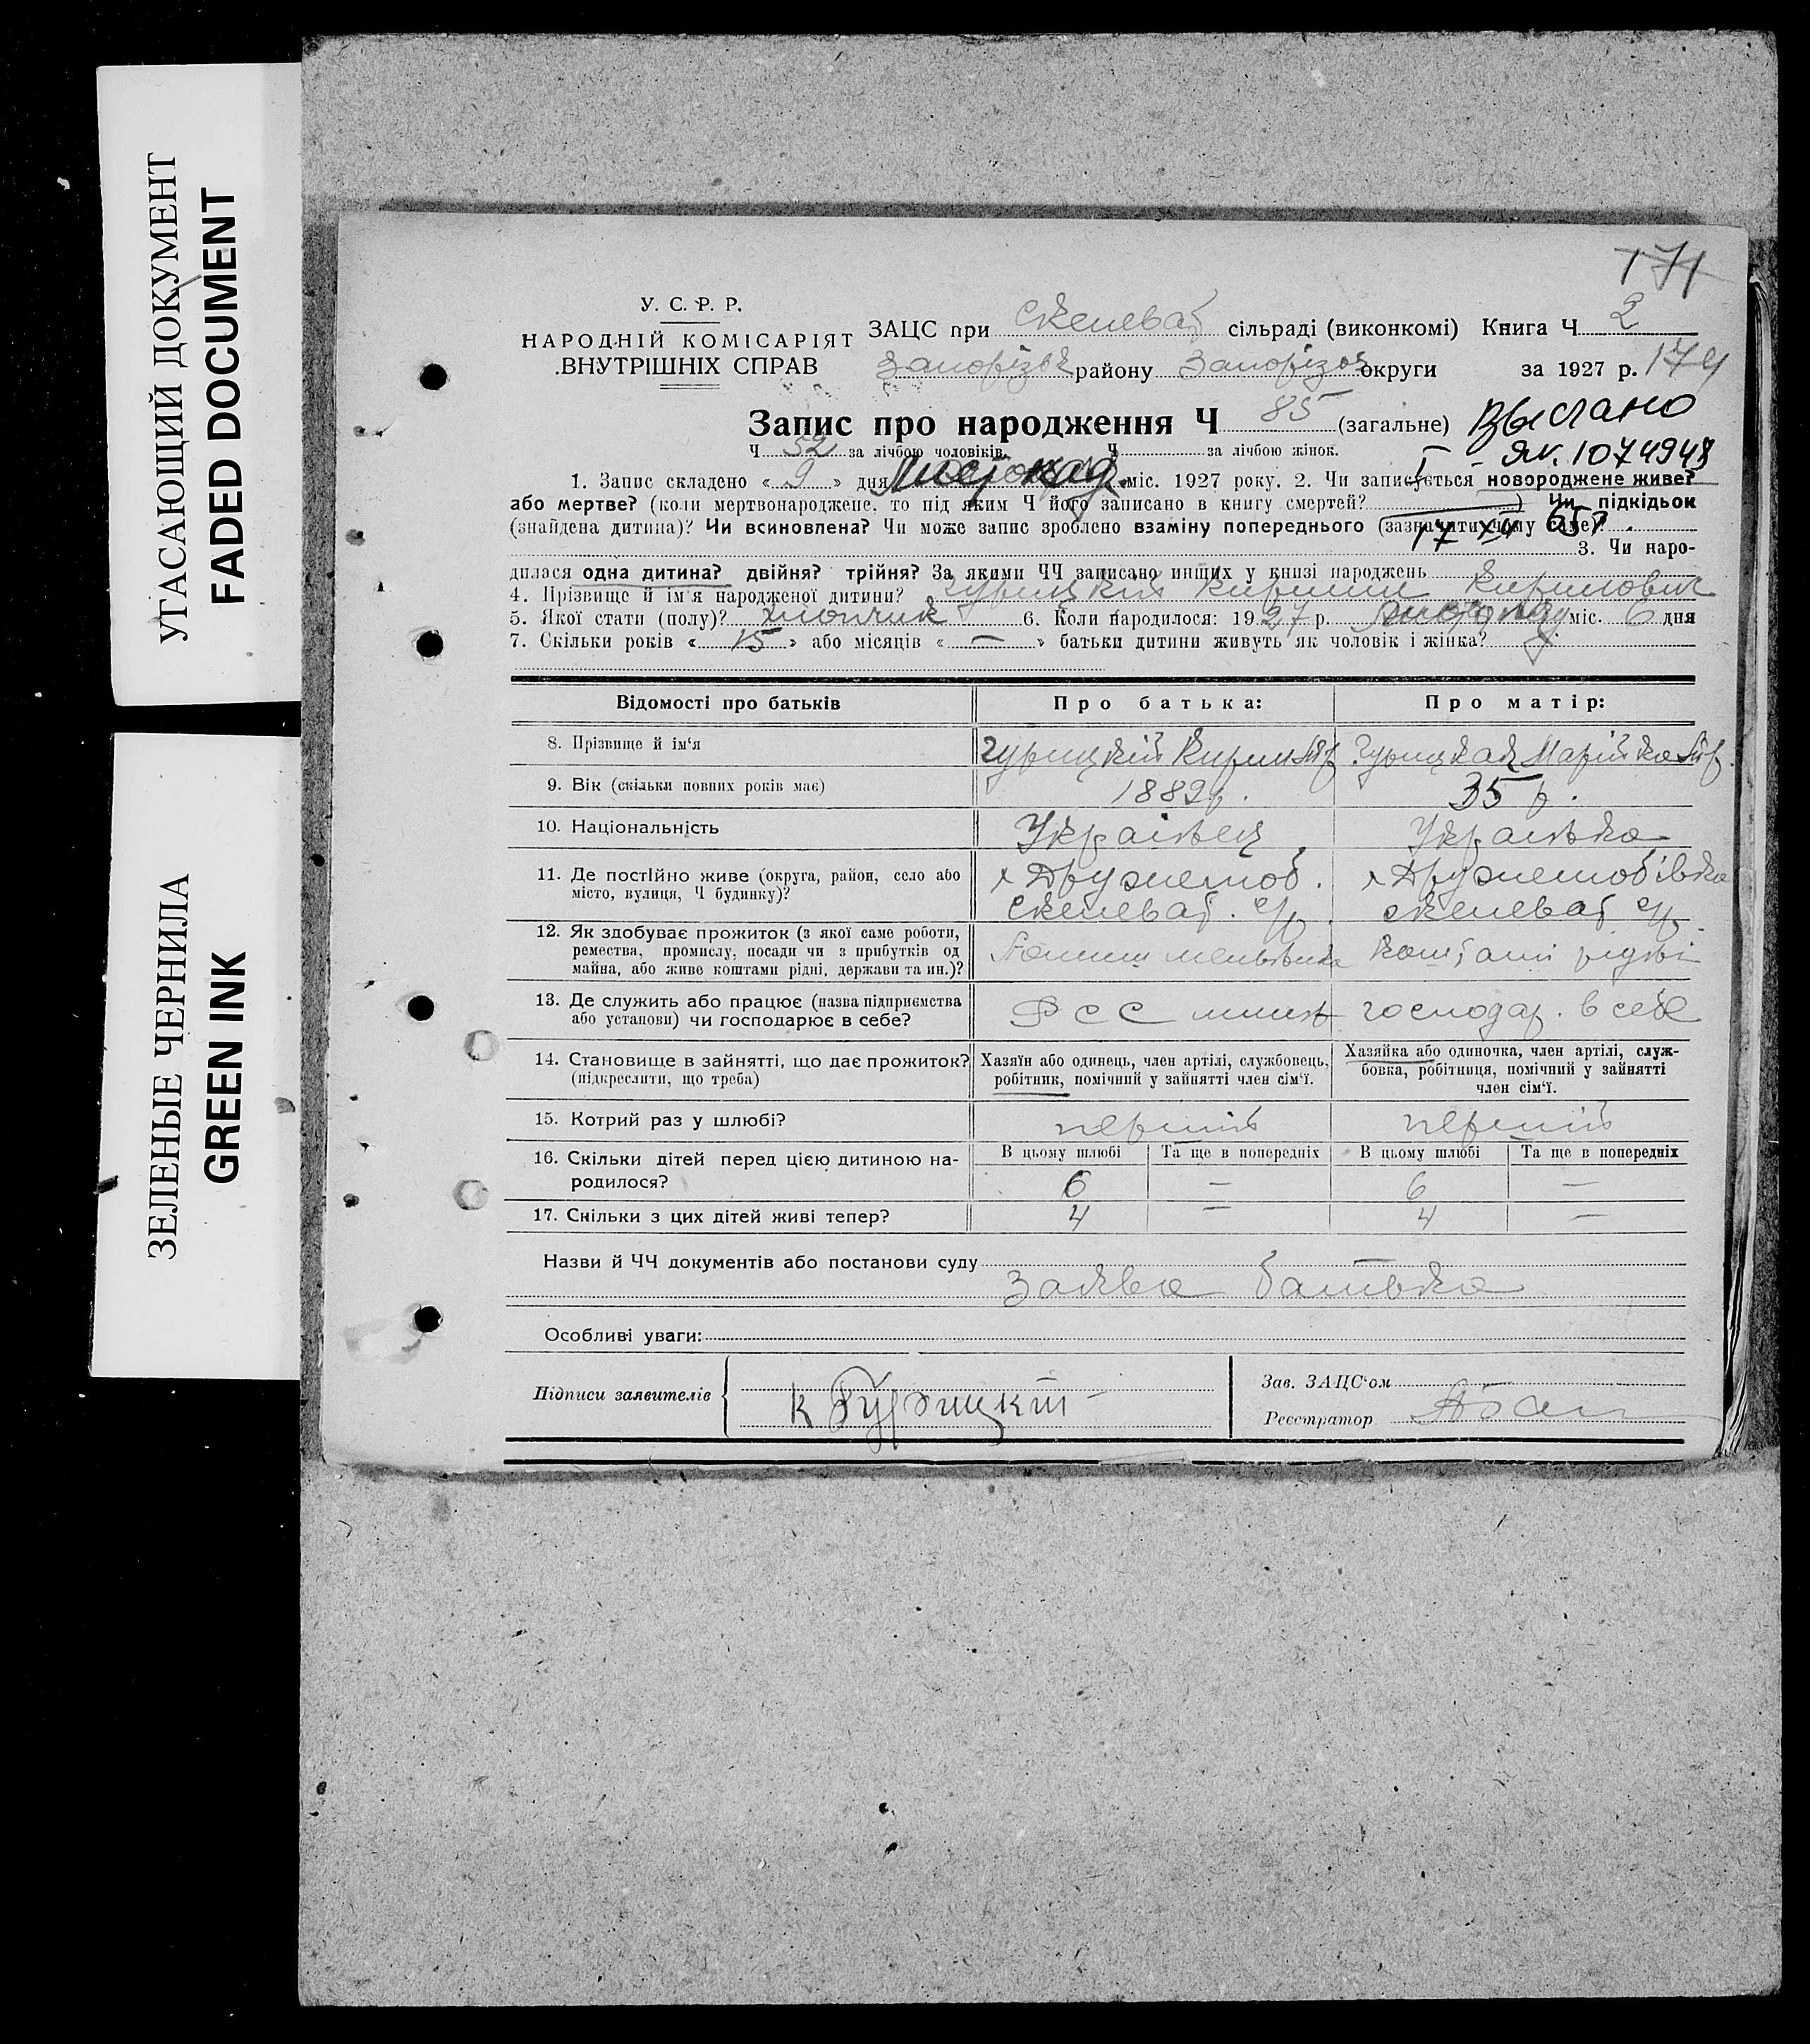 УГАСАЮЩИЙ ДОКУМЕНТ
FADED DOCUMENT
ЗЕЛЕНЫЕ ЧЕРНИЛА
GREEN INK
171
У. С. Р. Р.
НАРОДНІЙ КОМІСАРІЯТ
ВНУТРІШНІХ СПРАВ
ЗАЦС при Скелеват сільраді (виконкомі) Книга Ч 2
Запорізьк району Запорізьк округи за 1927 р. 174
Запис про народження Ч 85 (загальне) Выслано
Ч 52 за лічбою чоловіків. Ч за лічбою жінок. 1074948
1. Запис складено « 9 » дня Листопад міс. 1927 року. 2. Чи записується новороджене живе?
або мертве? (коли мертвонароджене, то під яким Ч його записано в книгу смертей? ) Чи підкідьок
(знайдена дитина)? Чи всиновлена? Чи може запис зроблено взаміну попереднього (зазначити чому саме)?
17 XII 65 г
3. Чи наро-
дилася одна дитина? двійня? трійня? За якими ЧЧ записано инщих у книзі народжень
4. Прізвище й ім'я народженої дитини? Гурицкій Кирилл Кирилович
5. Якої стати (полу)? хлопчик 6. Коли народилося: 1927 р. Листопаду міс. 6 дня
7. Скільки років « 15 » або місяців « — » батьки дитини живуть як чоловік і жінка?
Відомості про батьків Про батька: Про матір:
8. Прізвище й ім'я Гурицкій Кирил Гурицкая Марій
9. Вік (скільки повних років має) 1882 р. 35 р.
10. Національність Українец Українка
11. Де постійно живе (округа, район, село або місто, вулиця, Ч будинку)? х Дружелюб. Скелеват. с/р. х Дружелюбівка Скелеват с/р.
12. Як здобуває прожиток (з якої саме роботи, ремества, промислу, посади чи з прибутків од майна, або живе коштами рідні, держави та ин.)? коштами рідні
13. Де служить або працює (назва підприємства або установи) чи господарює в себе? РСС млин господар. в себе
14. Становище в зайнятті, що дає прожиток? (підкреслити, що треба) Хазяїн або одинець, член артілі, службовець, робітник, помічний у зайнятті член сім'ї. Хазяйка або одиночка, член артілі, служ-бовка, робітниця, помічний у зайнятті член сім'ї.
15. Котрий раз у шлюбі? перший перший
16. Скільки дітей перед цією дитиною на-родилося? В цьому шлюбі Та ще в попередніх В цьому шлюбі Та ще в попередніх
6 — 6 —
17. Скільки з цих дітей живі тепер? 4 — 4 —
Назви й ЧЧ документів або постанови суду
Заява батька
Особливі уваги:
Підписи заявителів К Гурицкій
Зав. ЗАЦС'ом
Реєстратор